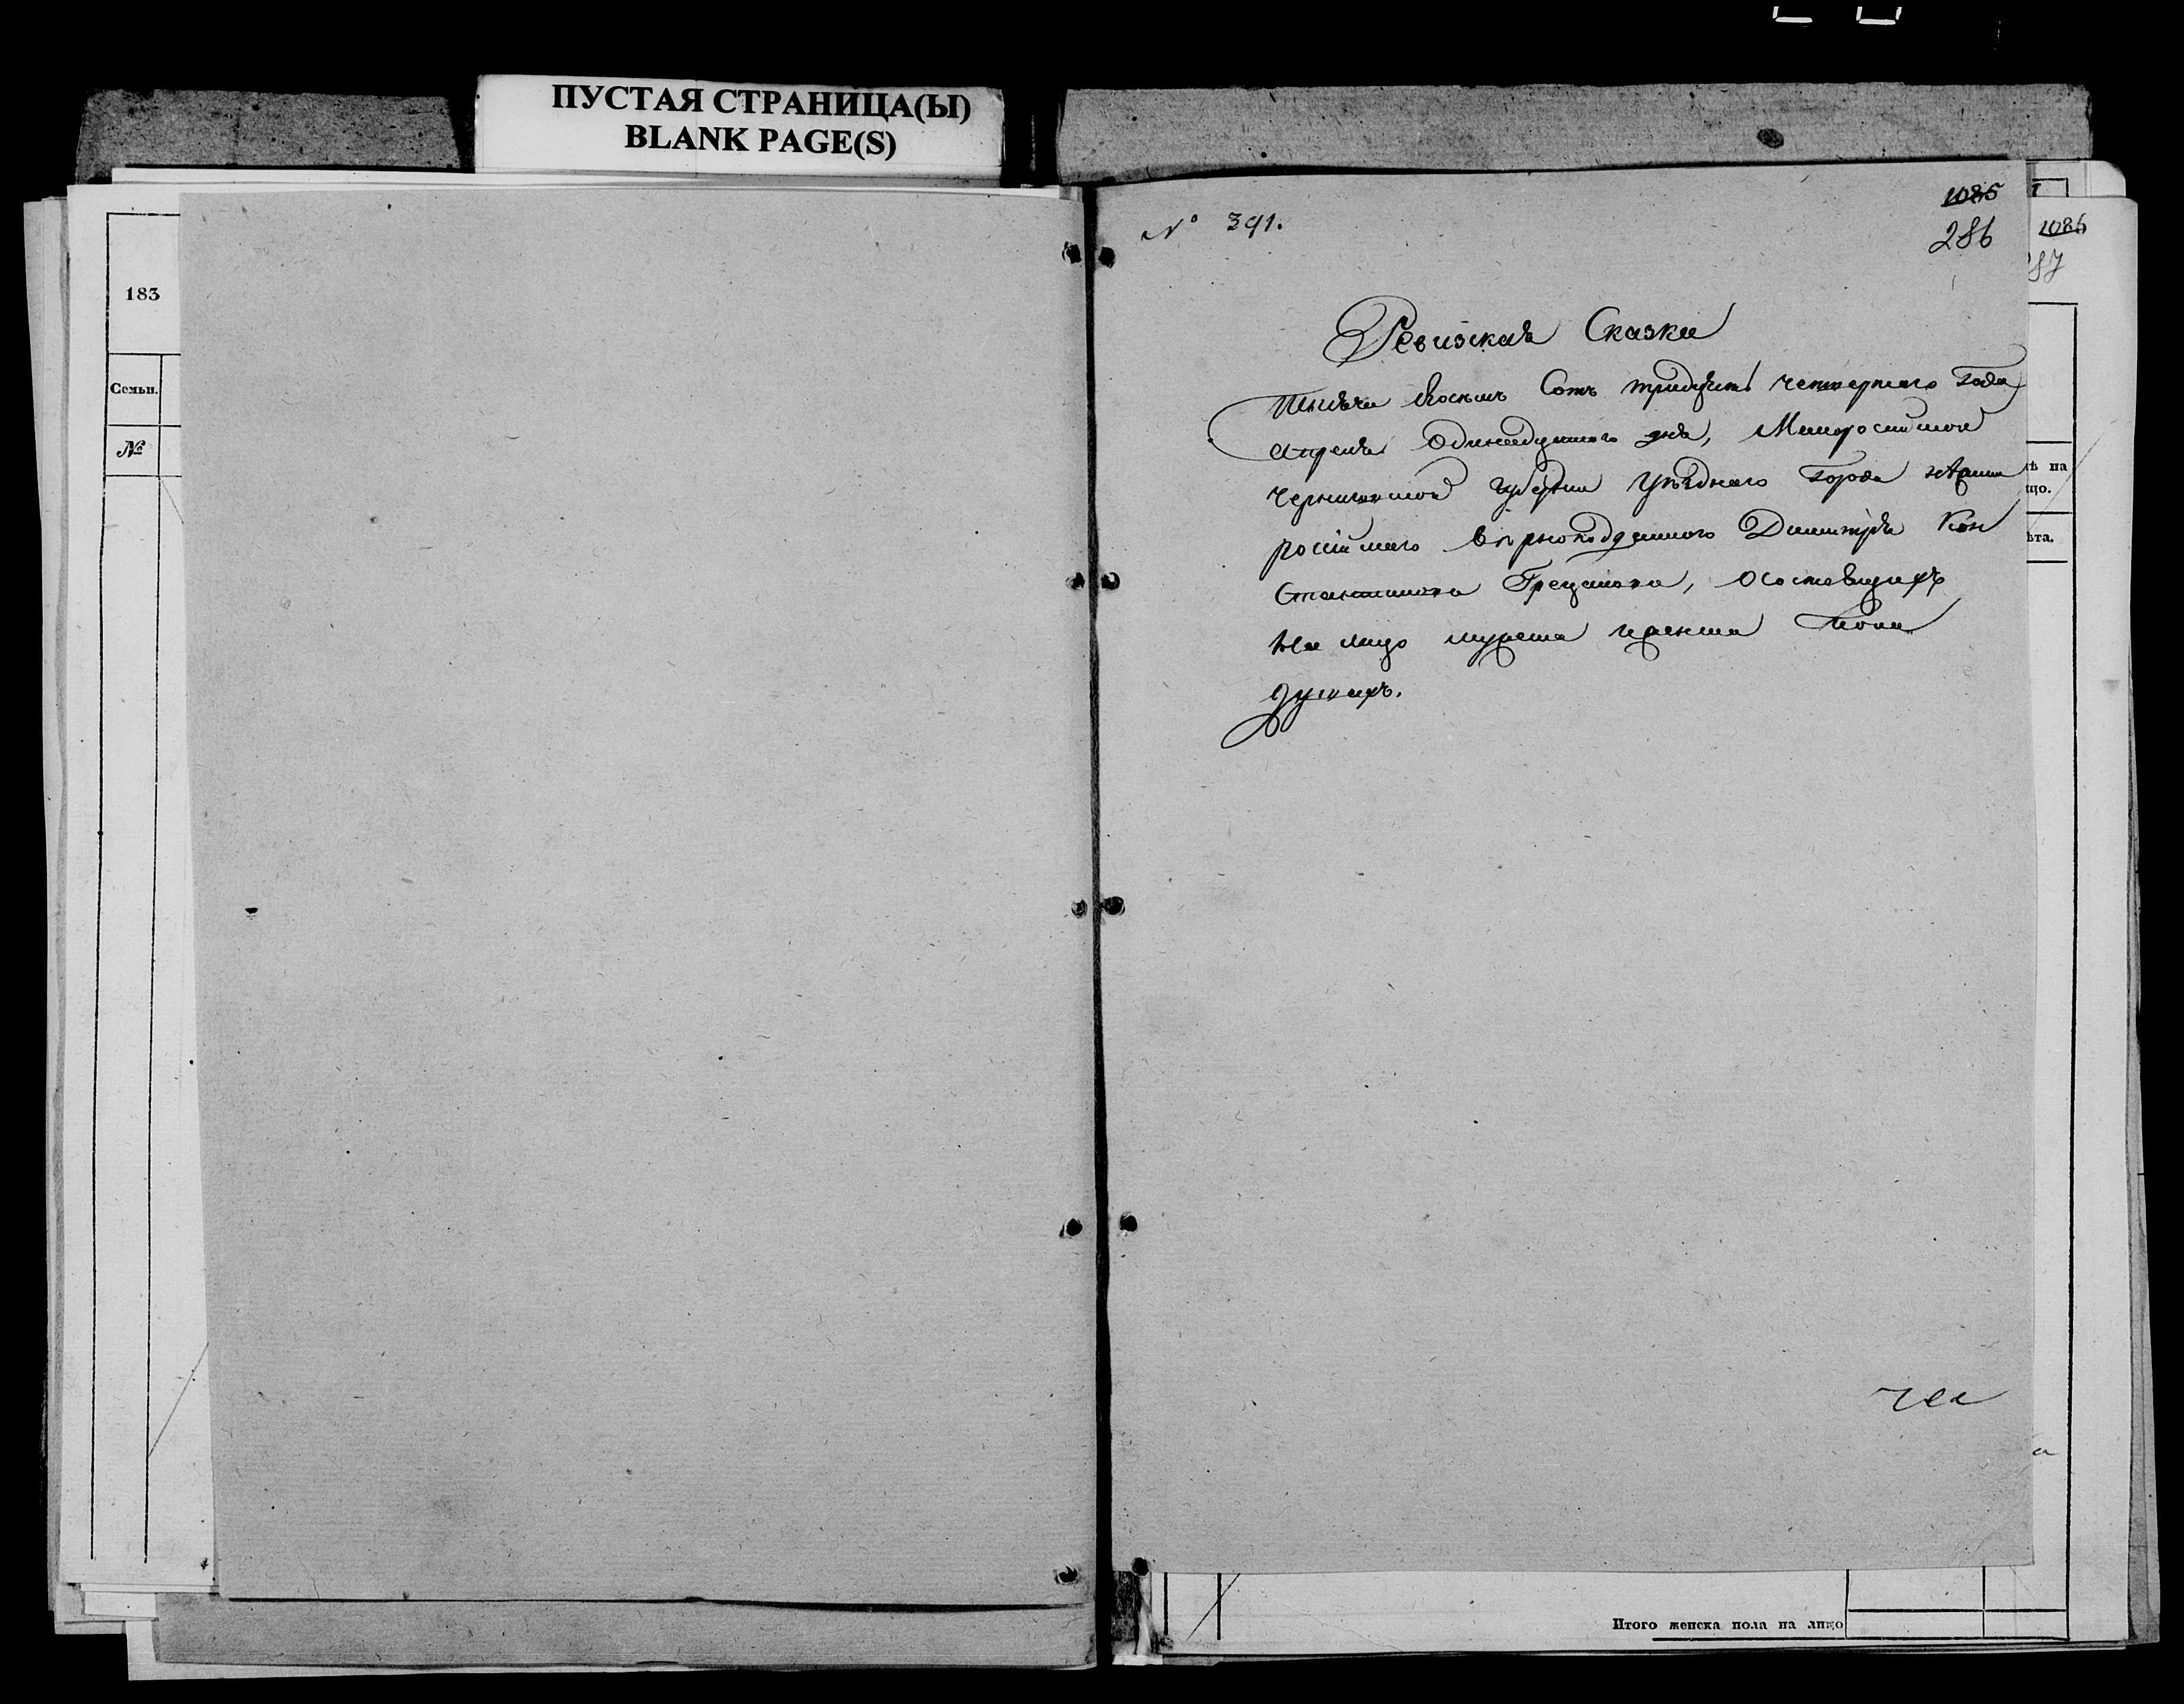 ПУСТАЯ СТРАНИЦА(Ы)
BLANK PAGE(S)
183
Семьи.
№
№ 391.
1085
286
1086
87
Ревизская Сказка
Тысяча восемь Сотъ тридцять четвертого года
апреля Одинадцатого дня, Малоросийской
Черниговской губернии уѣздного города нѣжина
росийского вѣрноподданного Димитрія Кон
стантинова Грецъ, О состоящихъ
На лицо мужеска и женска пола
душахъ.
ѣ на
цо.
ѣта.
Итого женска пола на лицо